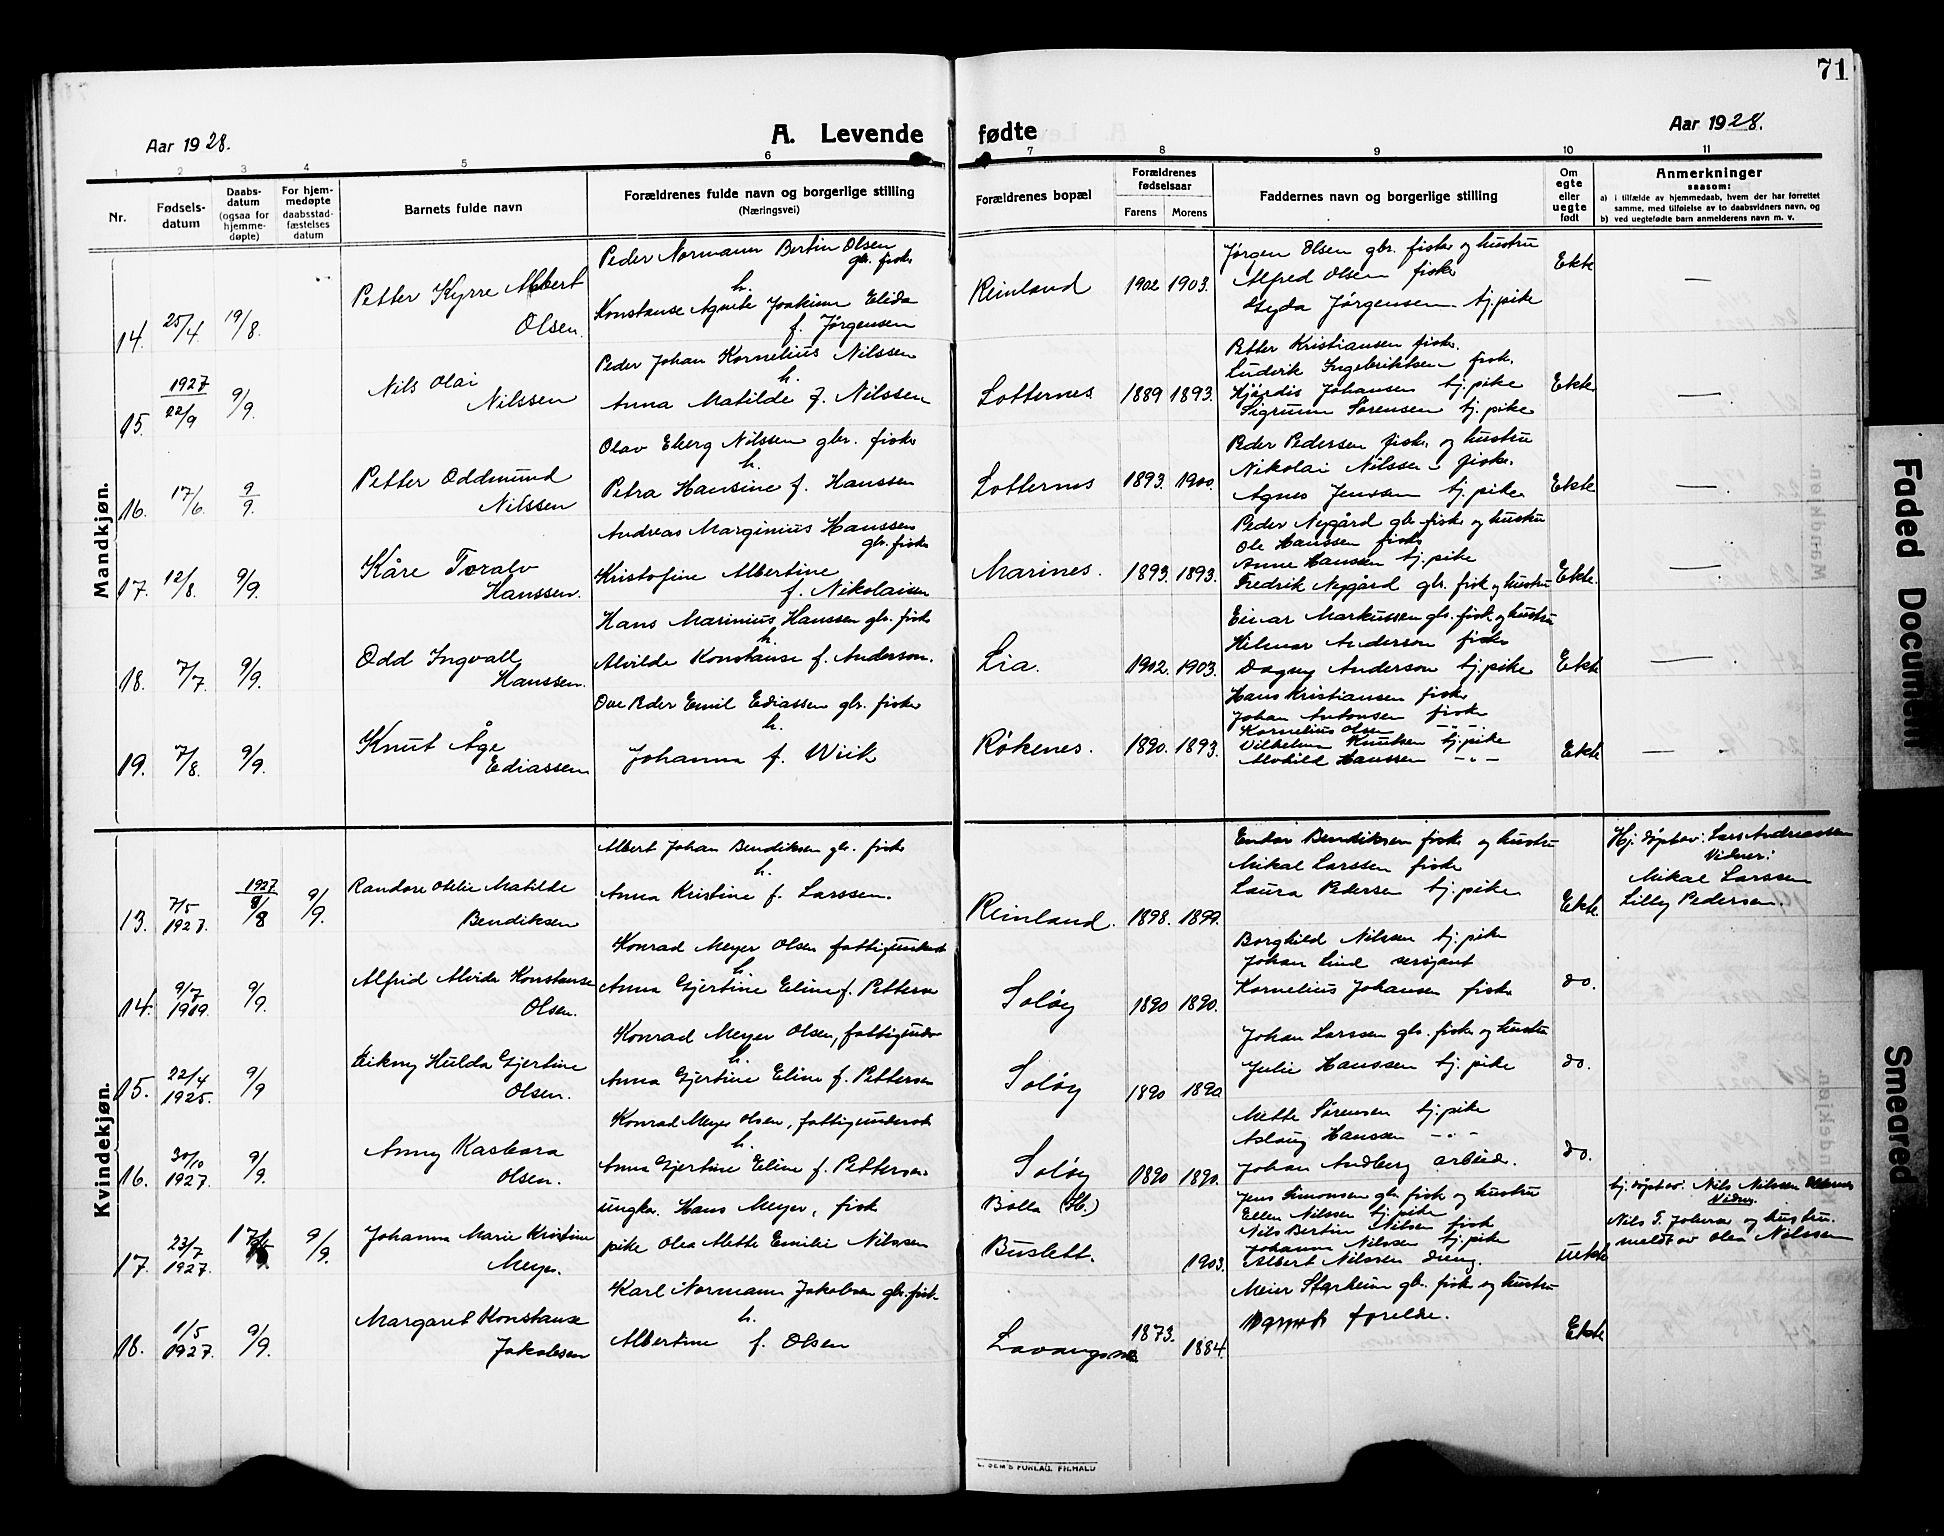 71
Aar 1928.
A. Levende fødte
Aar 1928.
1 2 3 4 5 6 7 8 9 10 11
Nr.
Fødsels-
datum
Daabs-
datum
(ogsaa for
hjemme-
døpte)
For hjem-
medøpte
daabsstad-
fæstelses
datum
Barnets fulde navn
Forældrenes fulde navn og borgerlige stilling
(Næringsvei)
Forældrenes bopæl
Forældrenes
fødselsaar
Farens Morens
Faddernes navn og borgerlige stilling
Om
egte
eller
uegte
født
Anmerkninger
saasom:
a) i tilfælde av hjemmedaab, hvem der har forrettet
samme, med tilføielse av to daabsvidners navn, og
b) ved uegtefødte barn anmelderens navn m. v.
Mandkjøn.
14. 25/4. 19/8.
Petter Kyrre Albert
Olsen
Peder Normann Bertin Olsen
gbr. fisker
h.
Konstanse Agnete Joakime Elida
f. Jørgensen
Reinland 1902 1903.
Jørgen Olsen gbr. fisker og hustru
Alfred Olsen fisker
Jørgensen tj. pike
Ekte
—
15. 1927
22/9 9/9.
Nils Olai
Nilssen
Peder Johan Kornelius Nilssen
h.
Anna Matilde f. Nilssen
Lotternes 1889 1893.
Petter Kristiansen fisk.
Ludvik Ingebriktsen fisk.
Hjørdis Johansen tj. pike
Sigrunn Sørensen tj. pike
Ekte
—
16. 17/6. 9/9.
Petter Oddmund
Nilssen
Olav Eberg Nilssen gbr. fisker
h.
Petra Hansine f. Hanssen
Lotternes 1893. 1900.
Peder Pedersen fisker og hustru
Nikolai Nilssen fisker.
Agnes Jenssen tj. pike
Ekte
—
17. 12/8. 9/9.
Kåre Toralv
Hanssen.
Andreas Marginius Hanssen
gbr. fisker
Kristofine Albertine
f. Nikolaisen
Marines. 1893. 1893.
Peder Nygård gbr fisker og hustru
Ole Hanssen fisker
Anne Hanssen tj. pike
Fredrik Nygård gbr. fisk og hustru
Ekte.
—
18. 7/7. 9/9.
Odd Ingvall
Hanssen.
Hans Marinius Hanssen gbr. fisker
h.
Alvilde Konstanse f. Anderson.
Lia. 1902. 1903.
Einar Markussen gbr. fisk og hustru
Hilmar Anderson fisker
Dagny Anderson tj. pike
Ekte
—
19. 7/8. 9/9.
Knut Åge
Ediassen
Ove Peder Emil Ediassen gbr. fisker
h.
Johanna f. Wiik
Røkenes. 1890. 1893.
Hans Kristiansen fisker
Johan Antonsen fiske
Kornelius Olsen —"—
Vilhelm Knutsen tj. pike
Hanssen —"—
Ekte
—
Kvindekjøn.
13. 7/5
1927. 1927
8/8 9/9.
Randore Otelie Matilde
Bendiksen
Albert Johan Bendiksen gbr. fisker
h.
Anna Kristine f. Larssen.
Reinland. 1898. 1899.
Endor Bendiksen fisker og hustru
Mikal Larssen fisker
Laura Pedersen tj. pike
Ekte
Hj. døpt av: Lars Andreassen
Vidner:
Mikal Larssen
Lilly Pedersen.
14. 9/7
1919. 9/9.
Alfrid Alvida Konstanse
Olsen.
Konrad Meyer Olsen fattigunderst
h.
Anna Gjertine Eline f. Petterse
Soløy 1890 1890.
Borghild Nilssen tj. pike
Johan Lind sersjant
Kornelius Johansen fisker
do.
15. 22/4
1925. 9/9
Eikny Hulda Gjertine
Olsen.
Konrad Meyer Olsen, fattigunder
h.
Anna Gjertine Eline f. Pettersen
Soløy 1890 1890
Johan Larssen gbr. fisker og hustru
Julie Hanssen tj. pike
do.
16. 30/10
1927. 9/9.
Anny Kasbara
Olsen.
Konrad Meyer Olsen, fattigunderst
h.
Anna Gjertine Eline f. Pettersen
Soløy 1890 1890.
Mette Sørensen tj. pike
Aslaug Hanssen —"—
Johan Andberg arbeid.
do.
17. 23/7
1927. 9/9.
Johanna Marie Kristine
Meyer.
ungkar. Hans Meyer, fisk
pike Olea Mette Emilie Nilssen
Bolla
Buslett. 1903.
Jens Simonsen gbr. fisk og hustru
Ellen Nilssen tj. pike
Nils Bertin Nilsen fisk
Johanna Nilssen tj. pike
Albert Nilssen dreng.
uekte
hj. døpt av: Nils Nilssen
Vidner
Nils T. og hustru.
meldt av Olea Nilssen
18. 1/5
1927. 9/9.
Margaret Konstanse
Jakobsen
Karl Normann Jakobsen gbr. fisk.
h.
Albertine f. Olsen
1873. 1884.
Meier Starheim gbr. fisker og hustru
forelde.
Ekte
E. SEM'S FORLAG, FR.HALD
Faded Document
Smeared